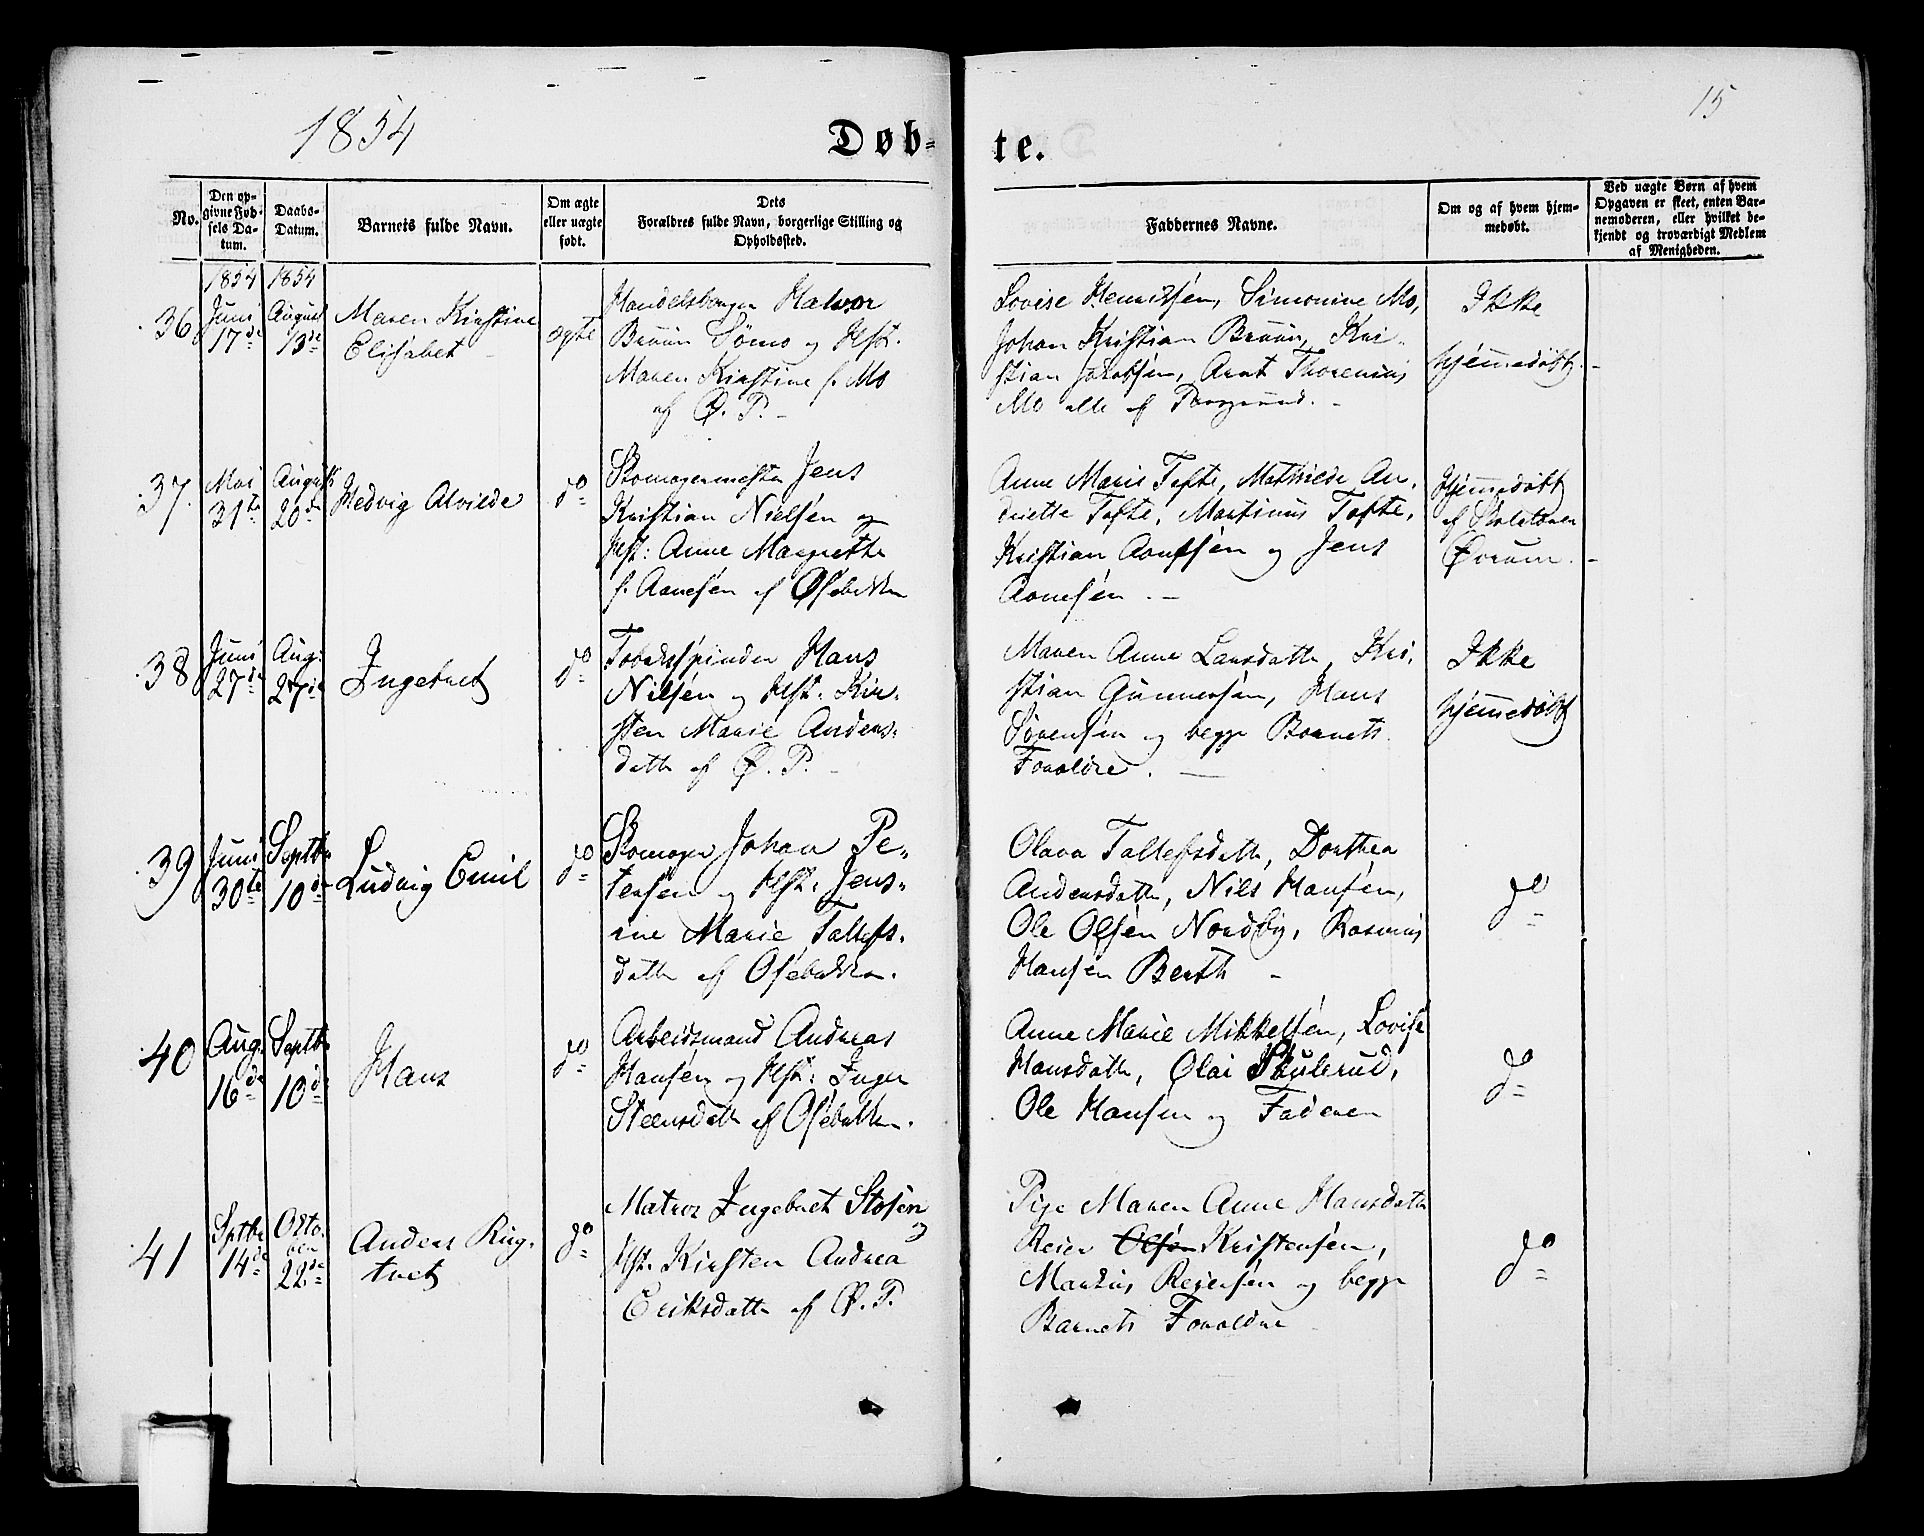 1854
15
Døb-
te.
No.
Den op-
givne Fød-
sels Da-
tum.
Daabs-
Datum.
Barnets fulde Navn.
Om ægte
eller uægte
født.
Dets
Forældres fulde Navn, borgerlige Stilling og
Opholdssted.
Faddernes Navne.
Om og af hvem hjem-
medøbt.
Ved uægte Børn af hvem
Opgaven er skeet, enten Bar-
nemoderen, eller hvilket be-
kjendt og troværdigt Medlem
af Menigheden.
36
1854
Juni
17de
1854
August
13de
Maren Kirstine
Elisabet
ægte
Handelsborger Halvor
Bruun Sømo og Hst.
Maren Kirstine f. Mo
af Ø. P.
Lovise Henriksen, Simonine Mo,
Johan Kristian Bruun, Kri-
stian Jakobsen, Arnt Thorenius
Mo alle af Porsgrund.
Ikke
hjemmedøbt.
37.
Mai
31te
August
20de
Hedvig Alvilde
do
Skomagermester Jens
Kristian Nielsen og
Hst: Anne Margrethe
f. Aanesen af Osebakken
Anne Marie Tofte, Mathilde An-
driette Tofte, Martinus Tofte,
Kristian Knutsen og Jens
Aanesen.
Hjemmedøbt
af Skolelærer
Ørum.
38
Juni
27de
Aug.
27de
Ingebret
do
Tobakspinder Hans
Nilsen og Hst. Kir-
sten Marie Anders-
datter af Ø. P.
Maren Anne Larsdatter, Kri-
stian Gunnersen, Hans
Sørensen og begge Barnets
Forældre.
Ikke
hjemmedøbt
39
Juni
30te
Septbr
10de
Ludvig Emil
do
Skomager Johan Pe-
tersen og Hst: Jens-
ine Marie Tallefs-
datter af Osebakken.
Olava Tallefsdatter, Dorthea
Andersdatter, Nils Hansen,
Ole Olsen Nordby, Rasmus
Hansen Berth
do
40
Aug.
16de
Septbr
10de
Hans
do
Arbeidsmand Andreas
Hansen og Hst: Inger
Steensdatter af Osebakken.
Anne Marie Mikkelsen, Lovise
Hansdatter, Olai Skulerud,
Ole Hansen og Faderen
do
41
Septbr
14de
Octo-
ber
22de
Anders Rug-
tvet
do
Matros Ingebret Stosen
og
Hst. Kirsten Andrea
Eriksdatter af Ø. P.
Pige Maren Anne Hansdatter
Reier Olsen Kristensen,
Markus Reiersen og begge
Barnets Forældre
do